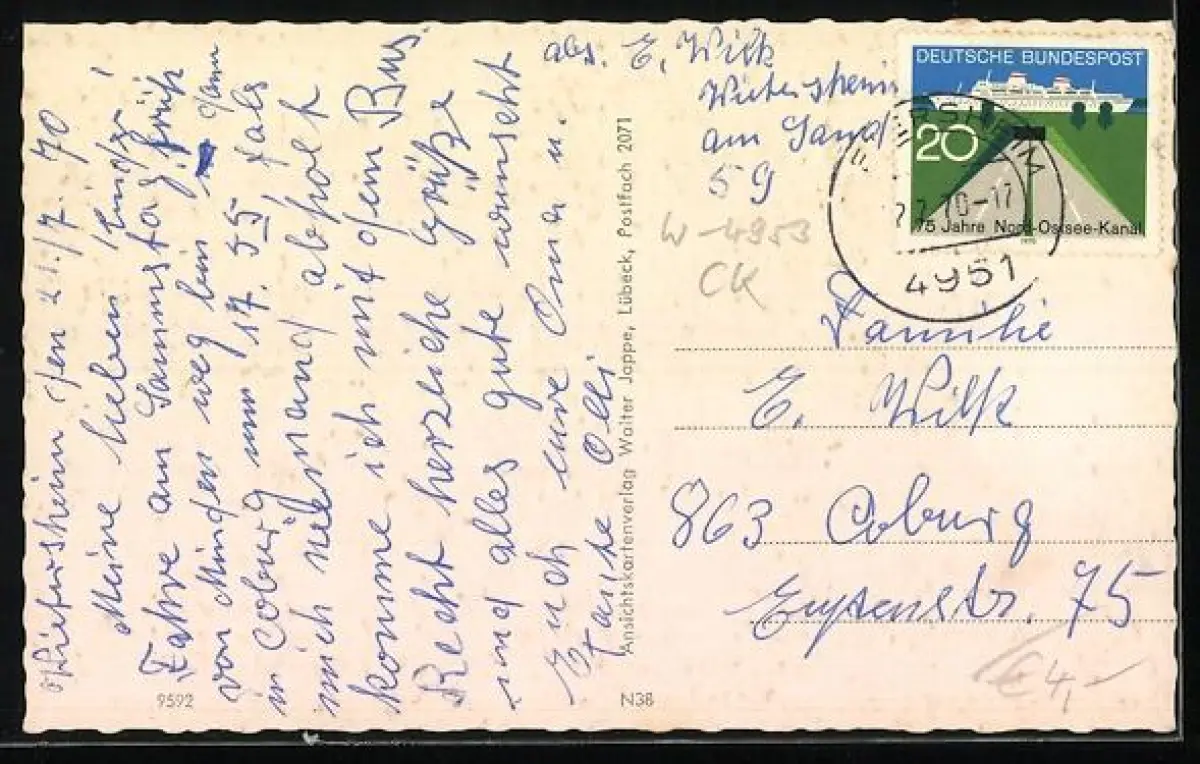 Wietersheim den 21./7. 70
Meine lieben
Fahre am Sammstag früh
von Minden weg bin dann
in Coburg um 17.55 falls
mich niemand abholt
komme ich mit dem Bus.
Recht herzliche Grüße
und alles gute wünscht
Euch eure Oma u.
Tante Olli
9592
N38
Ansichtskartenverlag Walter Jappe, Lübeck, Postfach 2071
abs. E. Wilk
Wietersheim
am Sand
59
W-4953
CK
DEUTSCHE BUNDESPOST
20
75 Jahre Nord-Ostsee-Kanal
1970
70-17
4951
Familie
E. Wilk
863 Coburg
75
€4,-